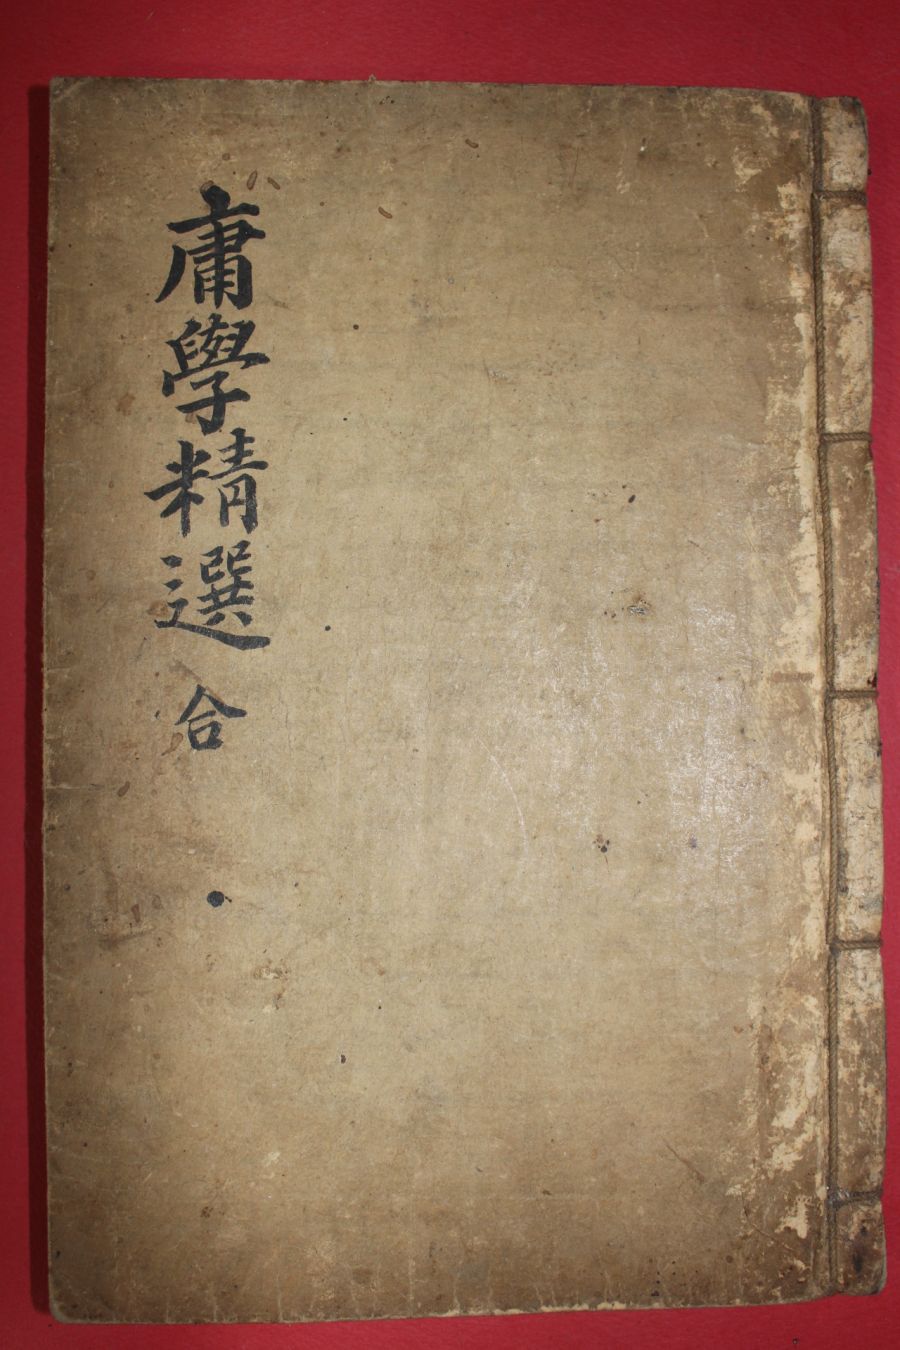 庸學精選 合